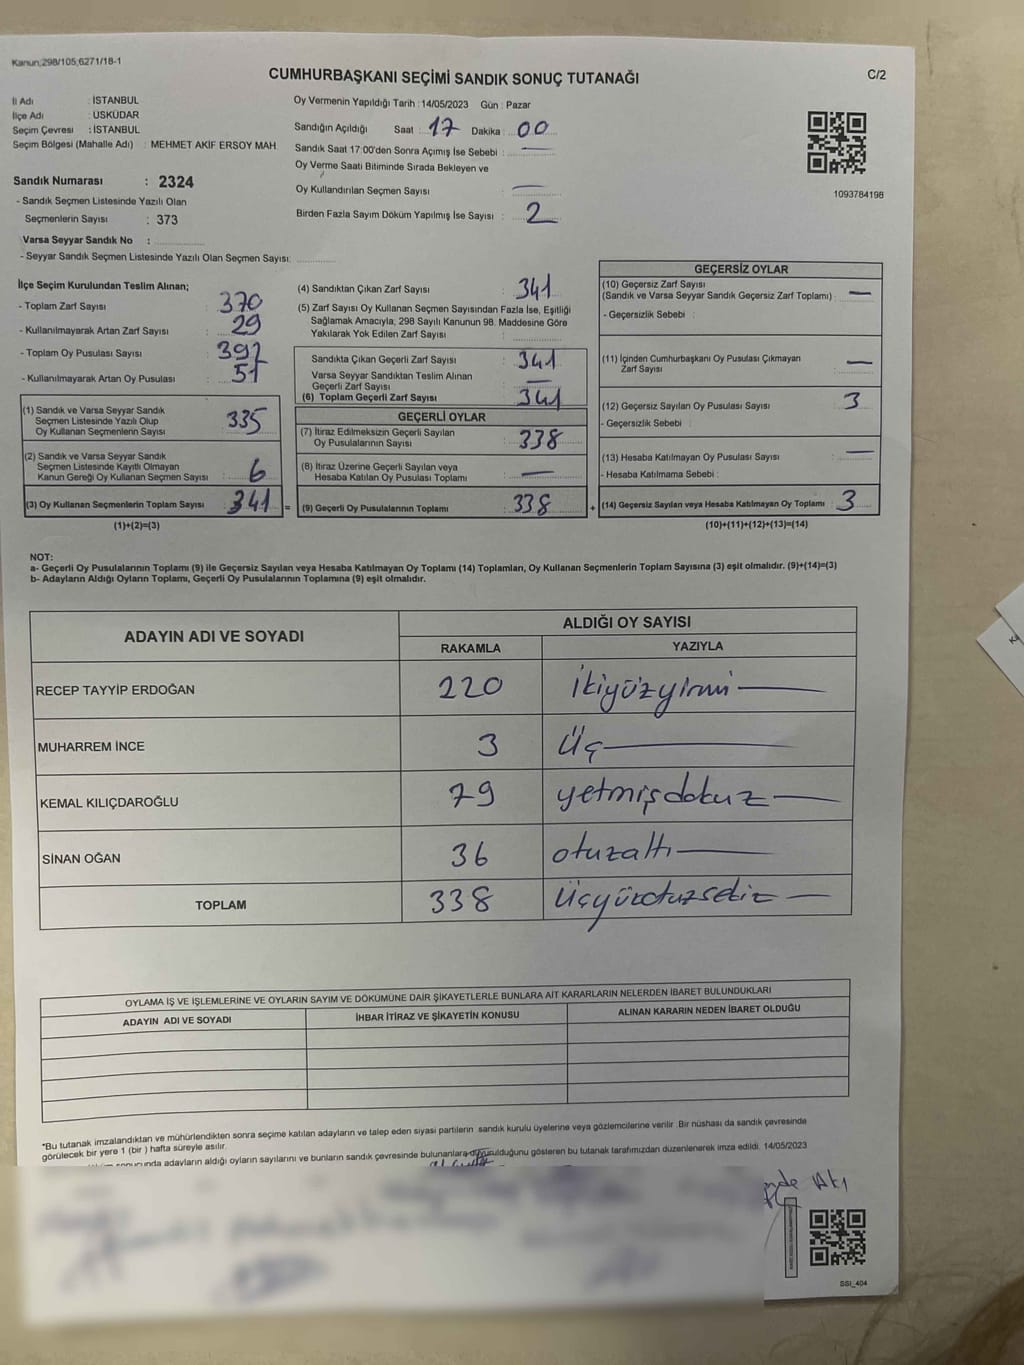 Kanun;298/105;6271/18-1
CUMHURBAŞKANI SEÇİMİ SANDIK SONUÇ TUTANAĞI
C/2
İl Adı : İSTANBUL
İlçe Adı : ÜSKÜDAR
Seçim Çevresi : İSTANBUL
Seçim Bölgesi (Mahalle Adı) : MEHMET AKİF ERSOY MAH
Sandık Numarası : 2324
- Sandık Seçmen Listesinde Yazılı Olan
Seçmenlerin Sayısı : 373
Varsa Seyyar Sandık No :
- Seyyar Sandık Seçmen Listesinde Yazılı Olan Seçmen Sayısı:
Oy Vermenin Yapıldığı Tarih : 14/05/2023 Gün : Pazar
Sandığın Açıldığı Saat : 17 Dakika : 00
Sandık Saat 17:00'den Sonra Açımış İse Sebebi : —
Oy Verme Saati Bitiminde Sırada Bekleyen ve
Oy Kullandırılan Seçmen Sayısı : —
Birden Fazla Sayım Döküm Yapılmış İse Sayısı : 2
1093784198
İlçe Seçim Kurulundan Teslim Alınan;
- Toplam Zarf Sayısı : 370
- Kullanılmayarak Artan Zarf Sayısı : 29
- Toplam Oy Pusulası Sayısı : 392
- Kullanılmayarak Artan Oy Pusulası : 51
(1) Sandık ve Varsa Seyyar Sandık
Seçmen Listesinde Yazılı Olup
Oy Kullanan Seçmenlerin Sayısı : 335
(2) Sandık ve Varsa Seyyar Sandık
Seçmen Listesinde Kayıtlı Olmayan
Kanun Gereği Oy Kullanan Seçmen Sayısı : 6
(3) Oy Kullanan Seçmenlerin Toplam Sayısı : 341 =
(1)+(2)=(3)
(4) Sandıktan Çıkan Zarf Sayısı : 341
(5) Zarf Sayısı Oy Kullanan Seçmen Sayısından Fazla İse, Eşitliği
Sağlamak Amacıyla, 298 Sayılı Kanunun 98. Maddesine Göre
Yakılarak Yok Edilen Zarf Sayısı :
Sandıkta Çıkan Geçerli Zarf Sayısı : 341
Varsa Seyyar Sandıktan Teslim Alınan
Geçerli Zarf Sayısı : —
(6) Toplam Geçerli Zarf Sayısı : 341
GEÇERLİ OYLAR
(7) İtiraz Edilmeksizin Geçerli Sayılan
Oy Pusulalarının Sayısı : 338
(8) İtiraz Üzerine Geçerli Sayılan veya
Hesaba Katılan Oy Pusulası Toplamı : —
(9) Geçerli Oy Pusulalarının Toplamı : 338 +
GEÇERSİZ OYLAR
(10) Geçersiz Zarf Sayısı
(Sandık ve Varsa Seyyar Sandık Geçersiz Zarf Toplamı) : —
- Geçersizlik Sebebi :
(11) İçinden Cumhurbaşkanı Oy Pusulası Çıkmayan
Zarf Sayısı : —
(12) Geçersiz Sayılan Oy Pusulası Sayısı : 3
- Geçersizlik Sebebi :
(13) Hesaba Katılmayan Oy Pusulası Sayısı : —
- Hesaba Katılmama Sebebi :
(14) Geçersiz Sayılan veya Hesaba Katılmayan Oy Toplamı : 3
(10)+(11)+(12)+(13)=(14)
NOT:
a- Geçerli Oy Pusulalarının Toplamı (9) ile Geçersiz Sayılan veya Hesaba Katılmayan Oy Toplamı (14) Toplamları, Oy Kullanan Seçmenlerin Toplam Sayısına (3) eşit olmalıdır. (9)+(14)=(3)
b- Adayların Aldığı Oyların Toplamı, Geçerli Oy Pusulalarının Toplamına (9) eşit olmalıdır.
ADAYIN ADI VE SOYADI
ALDIĞI OY SAYISI
RAKAMLA YAZIYLA
RECEP TAYYİP ERDOĞAN 220 ikiyüzyirmi
MUHARREM İNCE 3 Üç
KEMAL KILIÇDAROĞLU 79 yetmişdokuz
SİNAN OĞAN 36 otuzaltı
TOPLAM 338 Üçyüzotuzsekiz
OYLAMA İŞ VE İŞLEMLERİNE VE OYLARIN SAYIM VE DÖKÜMÜNE DAİR ŞİKAYETLERLE BUNLARA AİT KARARLARIN NELERDEN İBARET BULUNDUKLARI
ADAYIN ADI VE SOYADI İHBAR İTİRAZ VE ŞİKAYETİN KONUSU ALINAN KARARIN NEDEN İBARET OLDUĞU
*Bu tutanak imzalandıktan ve mühürlendikten sonra seçime katılan adayların ve talep eden siyasi partilerin sandık kurulu üyelerine veya gözlemcilerine verilir .Bir nüshası da sandık çevresinde
görülecek bir yere 1 (bir ) hafta süreyle asılır.
adayların aldığı oyların sayılarını ve bunların sandık çevresinde bulunanlara duyurulduğunu gösteren bu tutanak tarafımızdan düzenlenerek imza edildi. 14/05/2023
SSI_404